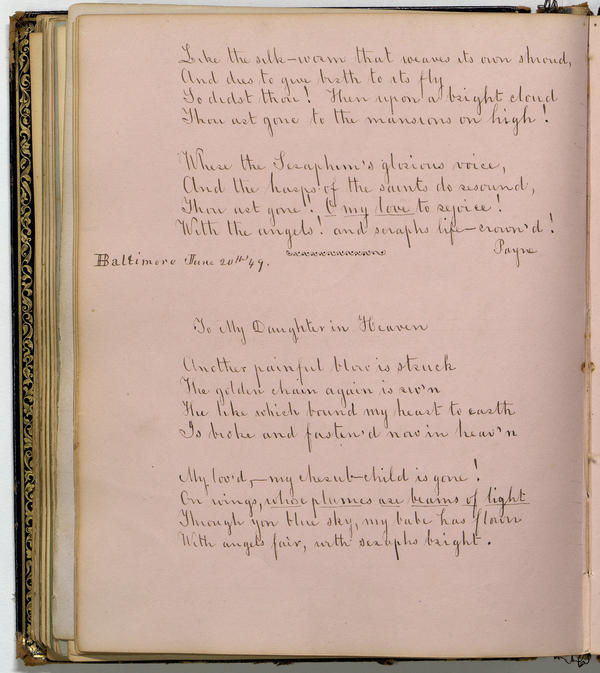 Like the silk-worm that weaves its own shroud,
And dies to give birth to its fly
So didst thou! Then upon a bright cloud
Thou art gone to the mansions on high!
Where the Seraphim's glorious voice,
And the harps of the saints do resound,
Thou art gone! O my love to rejoice!
With the angels! and seraphs life-crown'd!
Payne
Baltimore June 20th '49.
To My Daughter in Heaven
Another painful blow is struck
The golden chain again is riv'n
The like which bound my heart to earth
Is broke and fasten'd now in heav'n
My lov'd,-my cherub-child is gone!
On wings, whose plumes are beams of light
Through yon blue sky, my babe has flown
With angels fair, with seraphs bright.